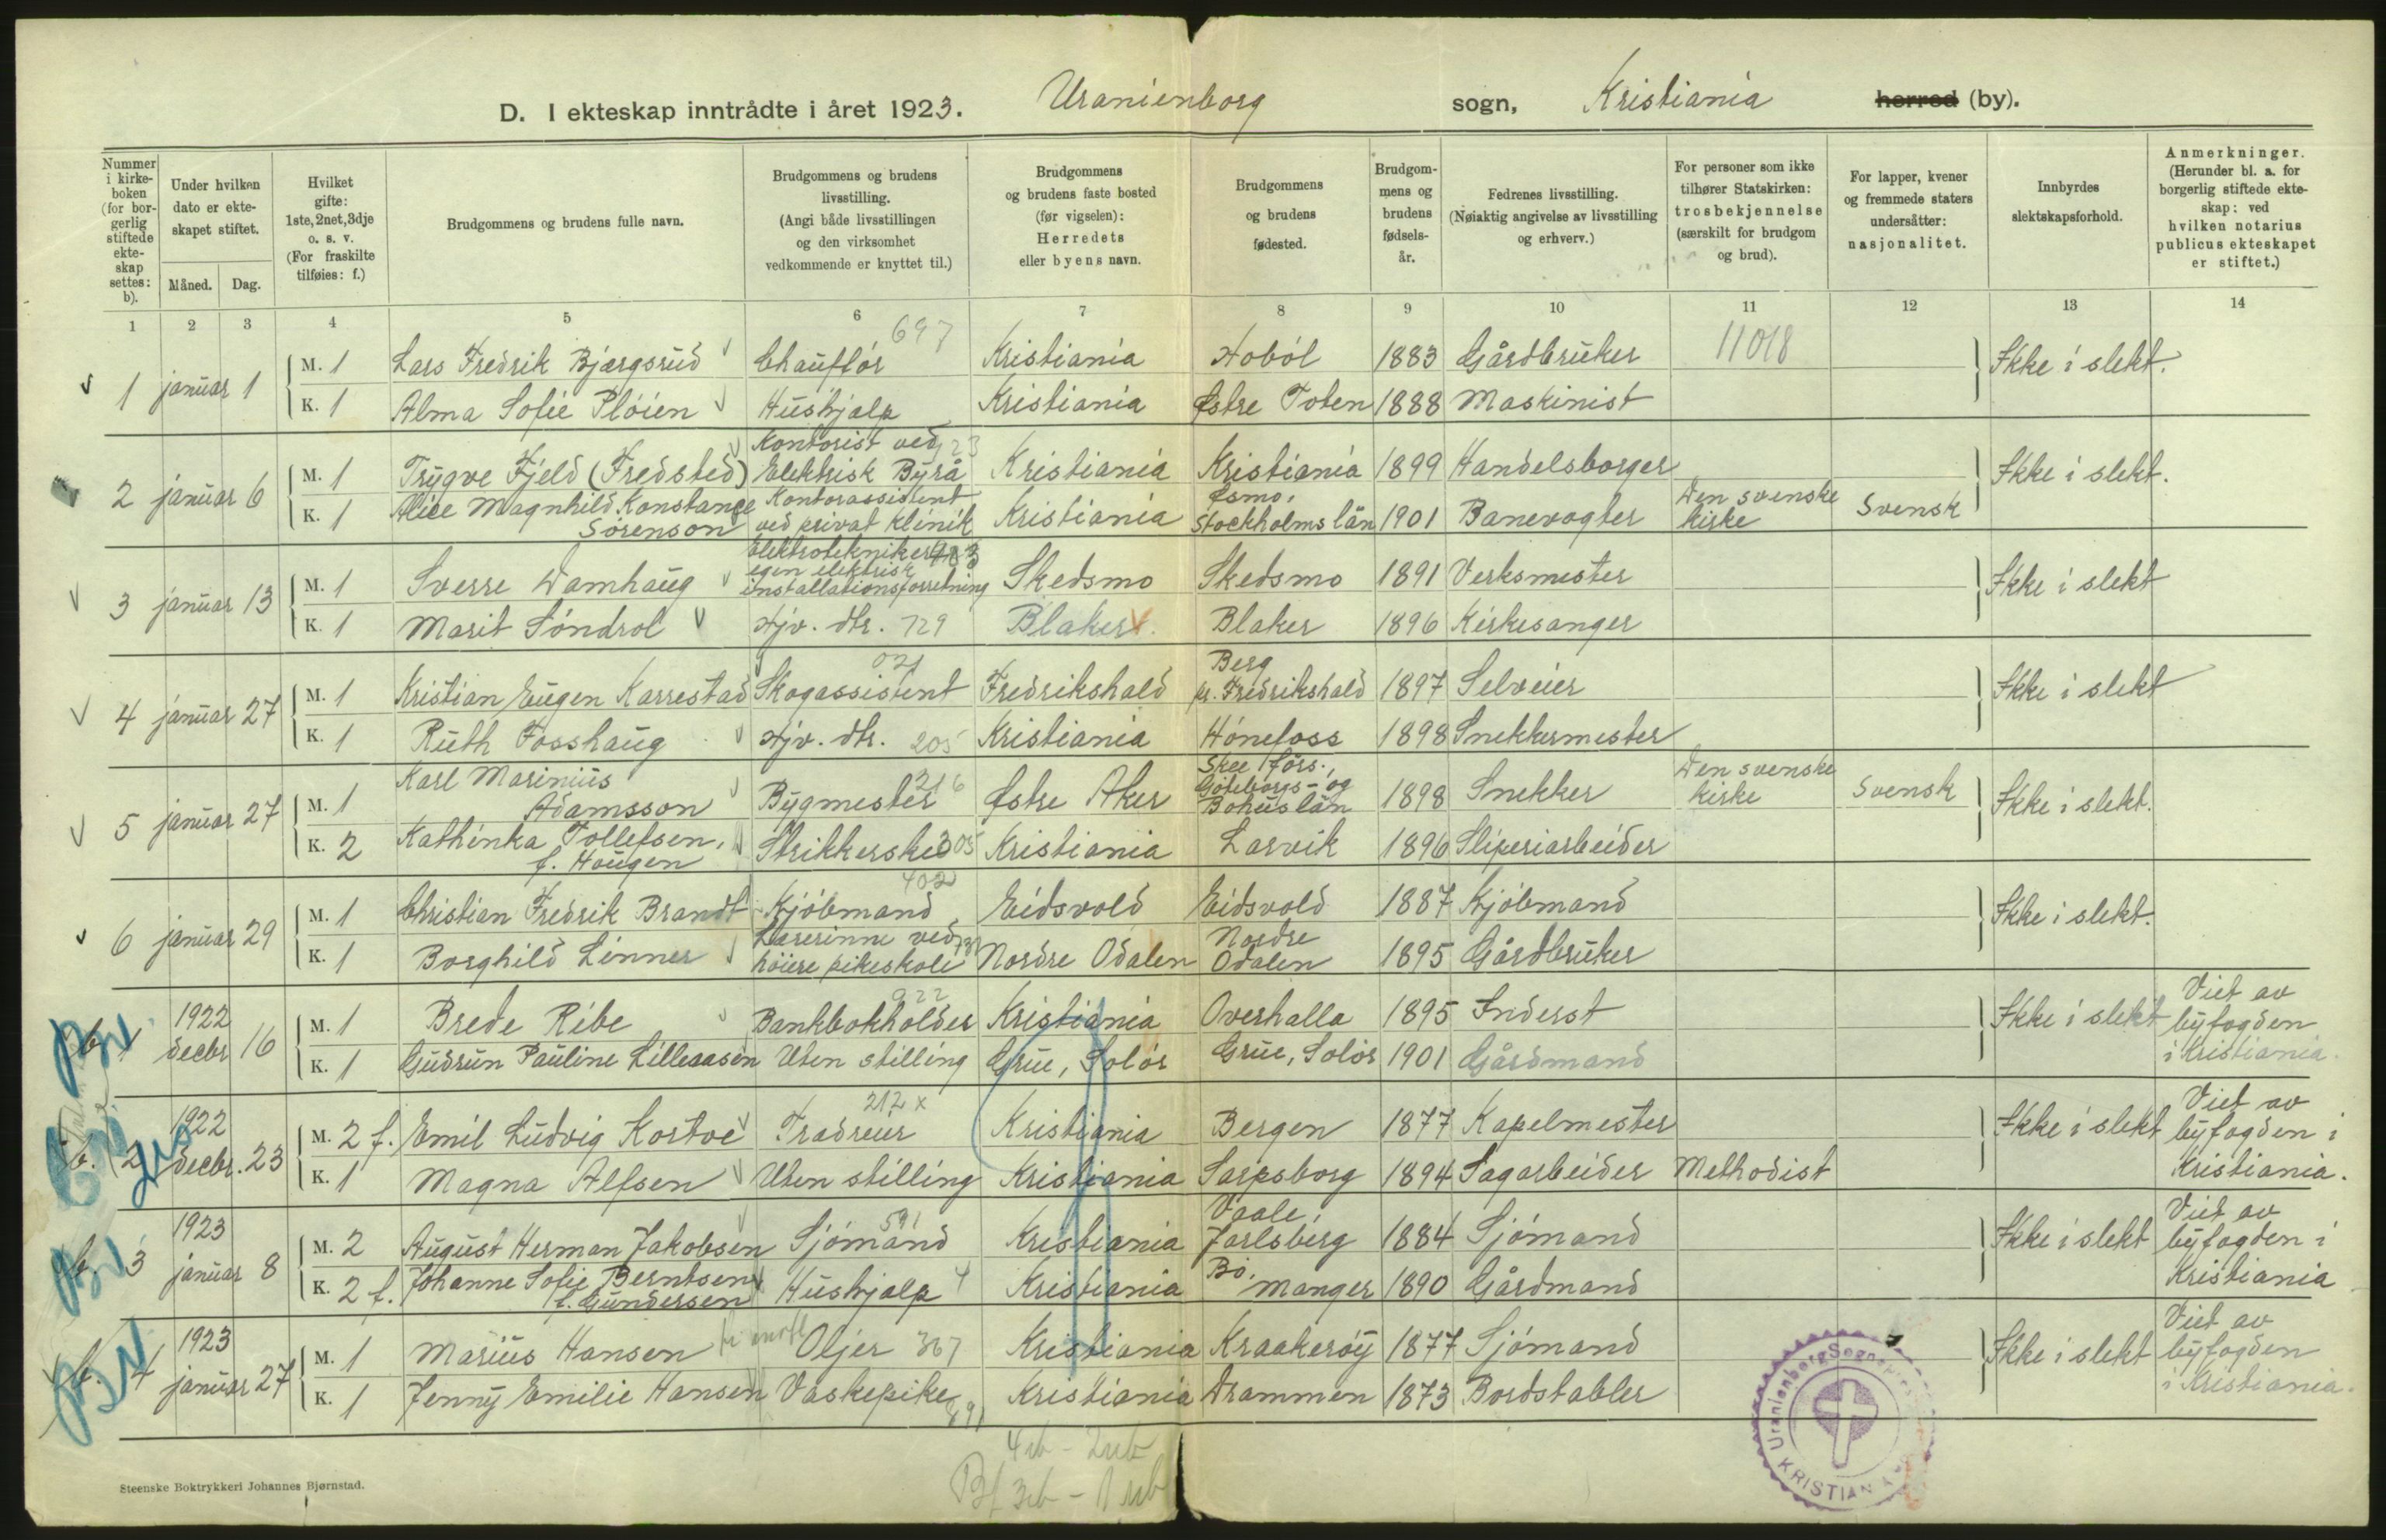 D. I ekteskap inntrådte i året 1923. Uranienborg sogn, Kristiania herred (by).
Nummer i kirkeboken (for borgerlig stiftede ekteskap settes: b).
Under hvilken dato er ekteskapet stiftet.
Måned. Dag.
Hvilket gifte: 1ste, 2net, 3dje o. s. v. (For fraskilte tilføies: f.)
Brudgommens og brudens fulle navn.
Brudgommens og brudens livsstilling. (Angi både livsstillingen og den virksomhet vedkommende er knyttet til.)
Brudgommens og brudens faste bosted (før vigselen): Herredets eller byens navn.
Brudgommens og brudens fødested.
Brudgommens og brudens fødselsår.
Fedrenes livsstilling. (Nøiaktig angivelse av livsstilling og erhverv.)
For personer som ikke tilhører Statskirken: trosbekjennelse (særskilt for brudgom og brud).
For lapper, kvener og fremmede staters undersåtter: nasjonalitet.
Innbyrdes slektskapsforhold.
Anmerkninger. (Herunder bl. a. for borgerlig stiftede ekteskap: ved hvilken notarius publicus ekteskapet er stiftet.)
1 2 3 4 5 6 7 8 9 10 11 12 13 14
697 11018
1 januar 1 M. 1 Lars Fredrik Bjærgsrud Chaufför Kristiania Hobøl 1883 Gårdbruker Ikke i slekt.
K. 1 Alma Sofie Pløien Hushjælp Kristiania Østre Toten 1888 Maskinist
2 januar 6 M. 1 Trygve Fjeld (Fredsted) Kontorist ved Elektrisk Byrå Kristiania Kristiania 1899 Handelsborger Ikke i slekt.
K. 1 Alice Magnhild Konstance Sørenson Kontorassistent ved privat klinik Kristiania Ösmo, Stockholms län 1901 Banevogter Den svenske kirke Svensk
3 januar 13 M. 1 Sverre Damhaug Elektrotekniker egen elektrisk installationsforretning Skedsmo Skedsmo 1891 Verksmester Ikke i slekt
K. 1 Marit Søndrol Hjv. dtr. 729 Blaker Blaker 1896 Kirkesanger
4 januar 27 M. 1 Kristian Eugen Karrestad Skogassistent 021 Fredrikshald Berg pr. Fredrikshald 1897 Selveier Ikke i slekt
K. 1 Ruth Fosshaug Hjv. dtr. 205 Kristiania Hønefoss 1898 Snekkermester
5 januar 27 M. 1 Karl Marinius Adamsson Bygmester 216 Østre Aker Skee förs., Göteborgs- og Bohuslän 1898 Snekker Den svenske kirke Svensk Ikke i slekt.
K. 2 Kathinka Tollefsen, f. Haugen Strikkerske 305 Kristiania Larvik 1896 Sliperiarbeider
6 januar 29 M. 1 Christian Fredrik Brandt Kjøbmand 402 Eidsvold Eidsvold 1887 Kjøbmand Ikke i slekt.
K. 1 Borghild Linner Lærerinne ved høiere pikeskole Nordre Odalen Nordre Odalen 1895 Gårdbruker
b. 1 1922 decbr 16 M. 1 Brede Ribe Bankbokholder 922 Kristiania Overhalla 1895 Inderst Ikke i slekt Viet av byfogden i Kristiania.
K. 1 Gudrun Pauline Lilleaasen Uten stilling Grue, Solør Grue, Solør 1901 Gårdmand
b. 2 1922 decbr. 23 M. 2 f. Emil Ludvig Kostvei Tradreier 212 x Kristiania Bergen 1877 Kapelmester Ikke i slekt Viet av byfogden i Kristiania.
K. 1 Magna Alfsen Uten stilling Kristiania Sarpsborg 1894 Sagarbeider Methodist
b. 3 1923 januar 8 M. 2 August Herman Jakobsen Sjømand 591 Kristiania Vaale, Jarlsberg 1884 Sjømand Ikke i slekt Viet av byfogden i Kristiania
K. 2 f. Johanne Sofie Berntsen f. Gundersen Hushjælp Kristiania Bø, Manger 1890 Gårdmand
b. 4 1923 januar 27 M. 1 Marius Hansen Oljer 367 Kristiania Kraakerøy 1877 Sjømand Ikke i slekt Viet av byfogden i Kristiania.
K. 1 Jenny Emilie Hansen Vaskepike Kristiania Drammen 1873 Bordstabler
Uranienborg
KRISTIANIA
Steenske Boktrykkeri Johannes Bjørnstad.